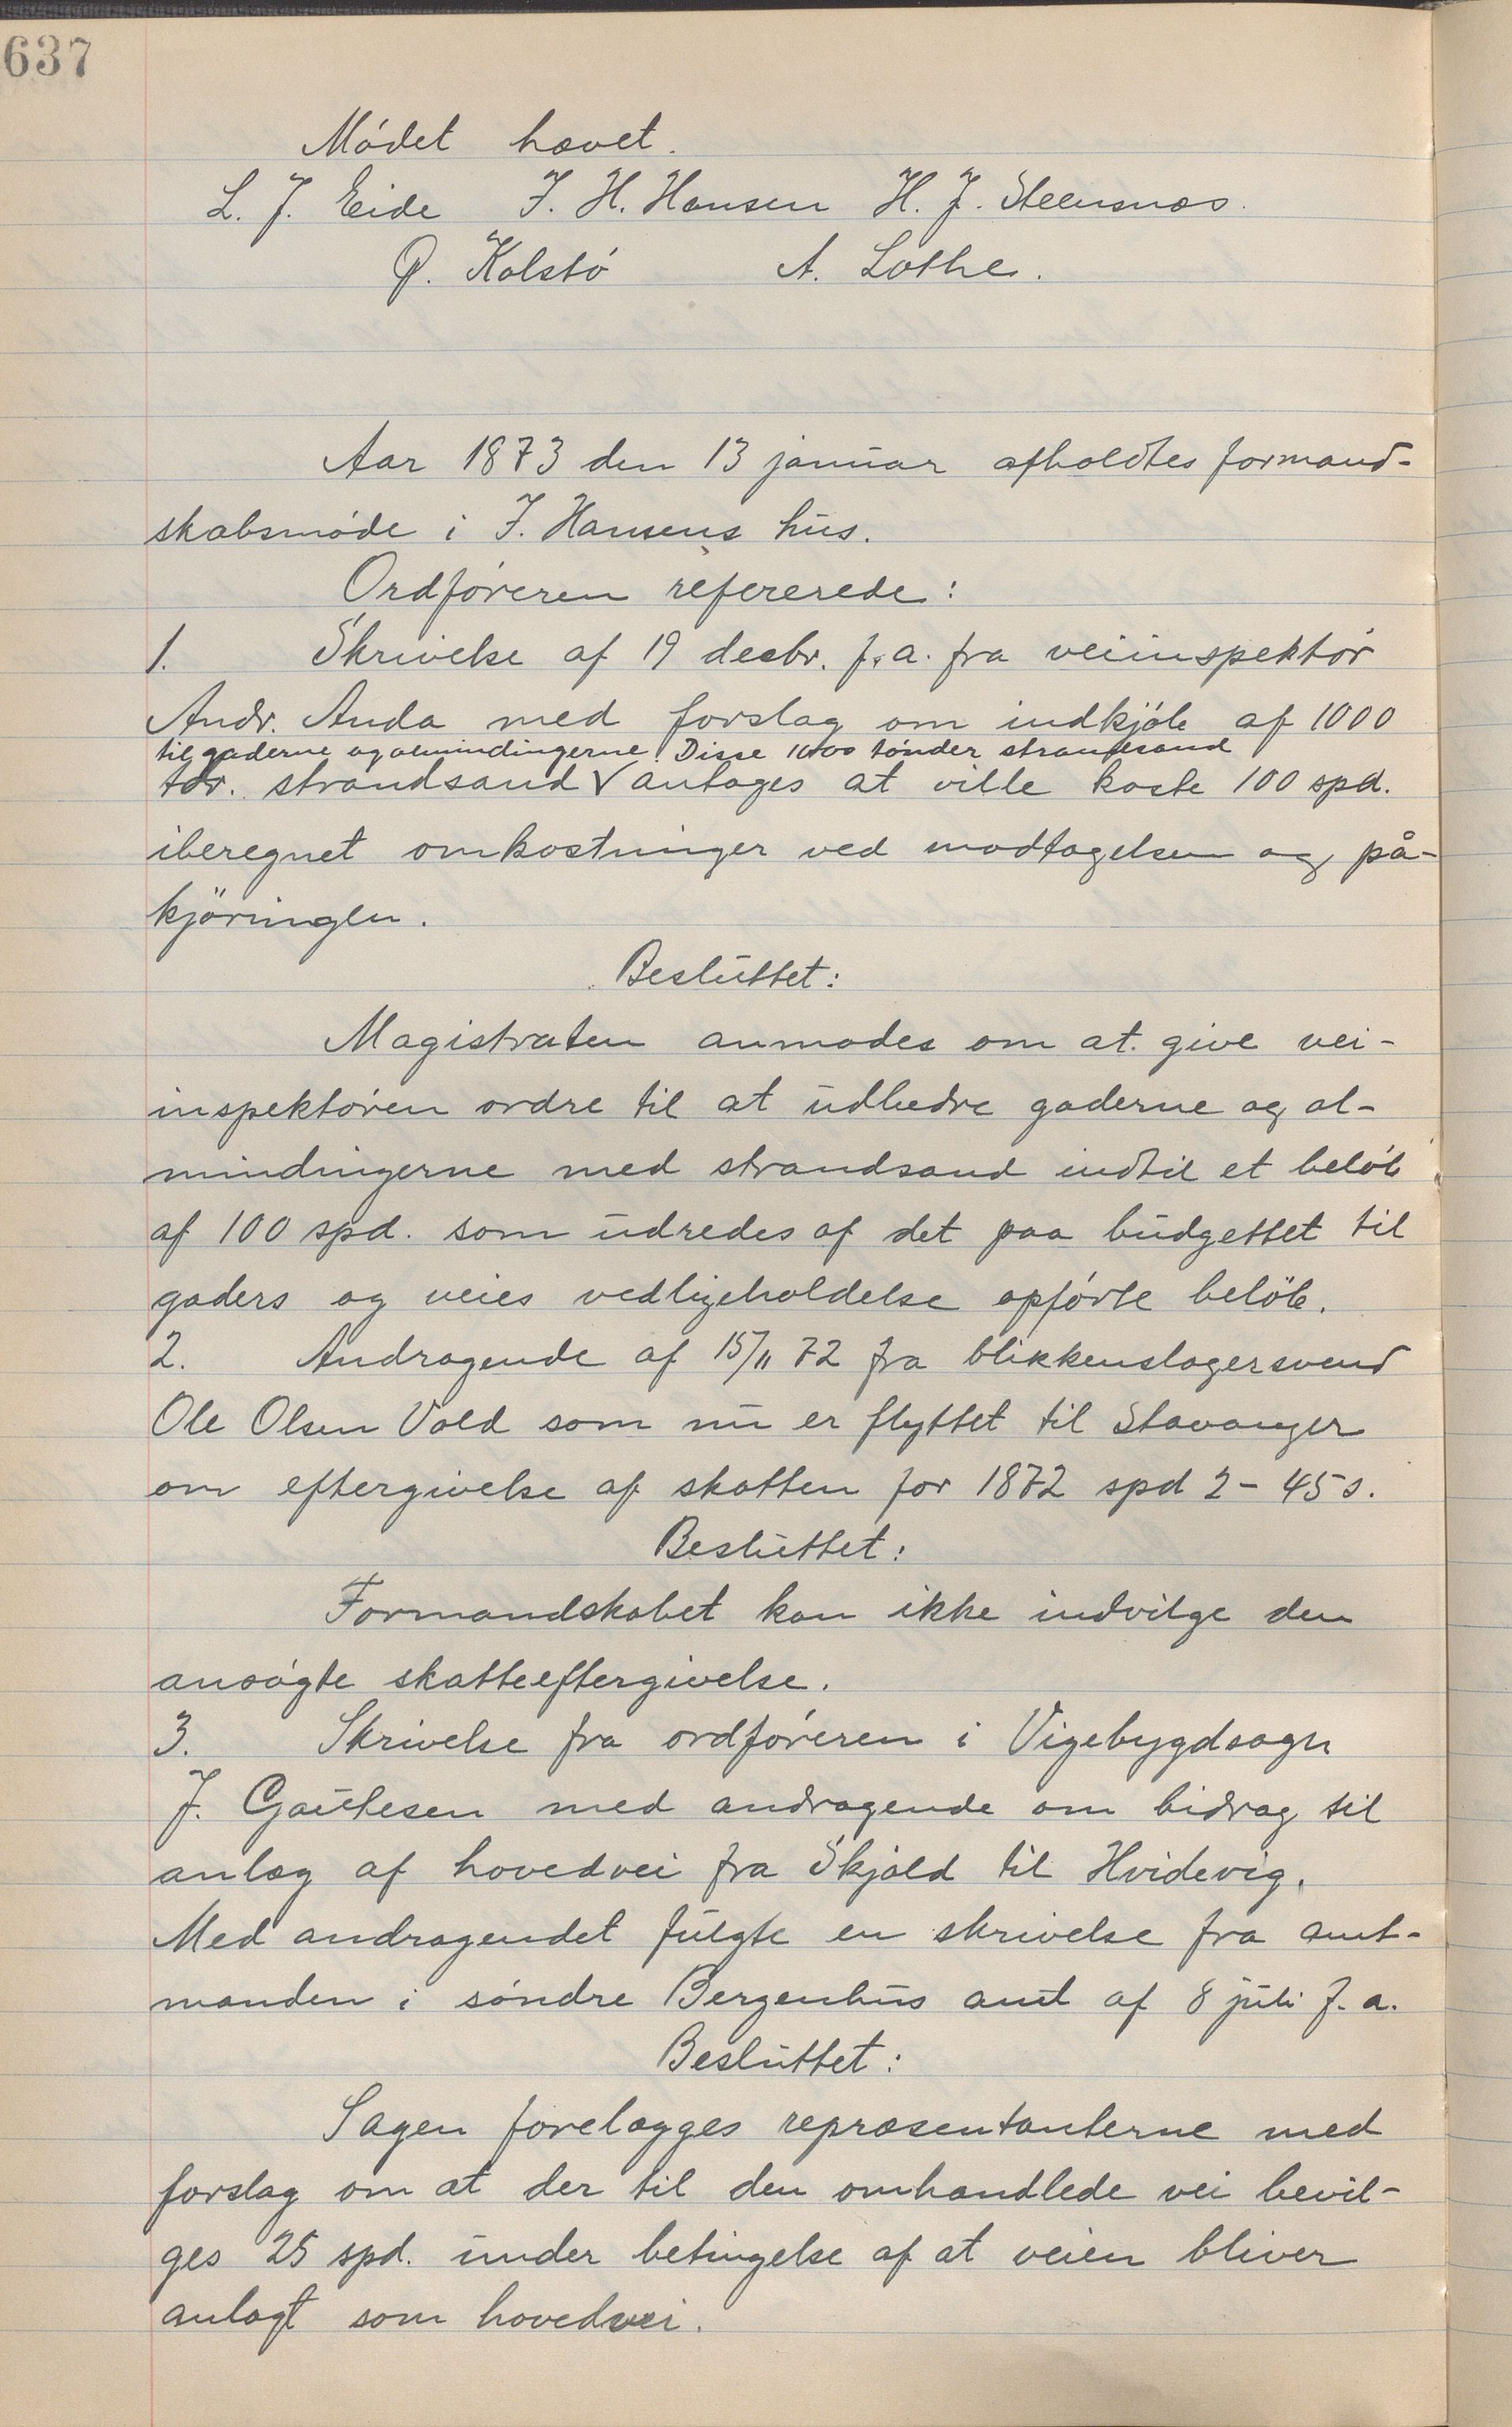 637
Mødet hævet.
L. J. Eide J. H. Hansen H. J. Steensnæs.
Q. Kolstø A. Lothe.
Aar 1873 den 13 januar afholdtes formand-
skabsmøde i J. Hansens hus.
Ordføreren refererede:
1. Skrivelse af 19 decbr. f.a. fra veiinspektør
Andr. Anda med forslag om indkjøb af 1000
til gaderne og almindingerne. Disse 1000 tønder strandsand
tdr. strandsand √ antages at ville koste 100 spd.
iberegnet omkostninger ved modtagelsen og på-
kjøringen.
Besluttet:
Magistraten anmodes om at give vei-
inspektøren ordre til at udbedre gaderne og al-
mindingerne med strandsand indtil et beløb
af 100 spd. som udredes af det paa budgettet til
gaders og veies vedligeholdelse opførte beløb.
2. Andragende af 15/11 72 fra blikkenslagersvend
Ole Olsen Vold som nu er flyttet til Stavanger
om eftergivelse af skatten for 1872 spd 2 - 45 s.
Besluttet:
Formandskabet kan ikke indvilge den
ansøgte skatteeftergivelse.
3. Skrivelse fra ordføreren i Vigebygdsogn
J. Gautesen med andragende om bidrag til
anlæg af hovedvei fra Skjold til Hvidevig.
Med andragendet fulgte en skrivelse fra amt-
manden i søndre Bergenhus amt af 8 juli f. a.
Besluttet:
Sagen forelægges repræsentanterne med
forslag om at der til den omhandlede vei bevil-
ges 25 spd. under betingelse af at veien bliver
anlagt som hovedvei.